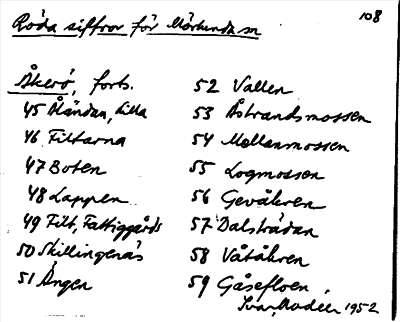 108
Röda siffror för Mörlunda sn
Åkerö, forts.
45 Åländan, Lilla
46 Filtarna
47 Boten
48 Lappen
49 Filt, Fattiggårds
50 Skillingenäs
51 Ängen
52 Vallen
53 Åstrandsmossen
54 Mellanmossen
55 Logmossen
56 Gevåkren
57 Dalsträdan
58 Våtåkren
59 Gåsefloen
Ivar Modéer 1952